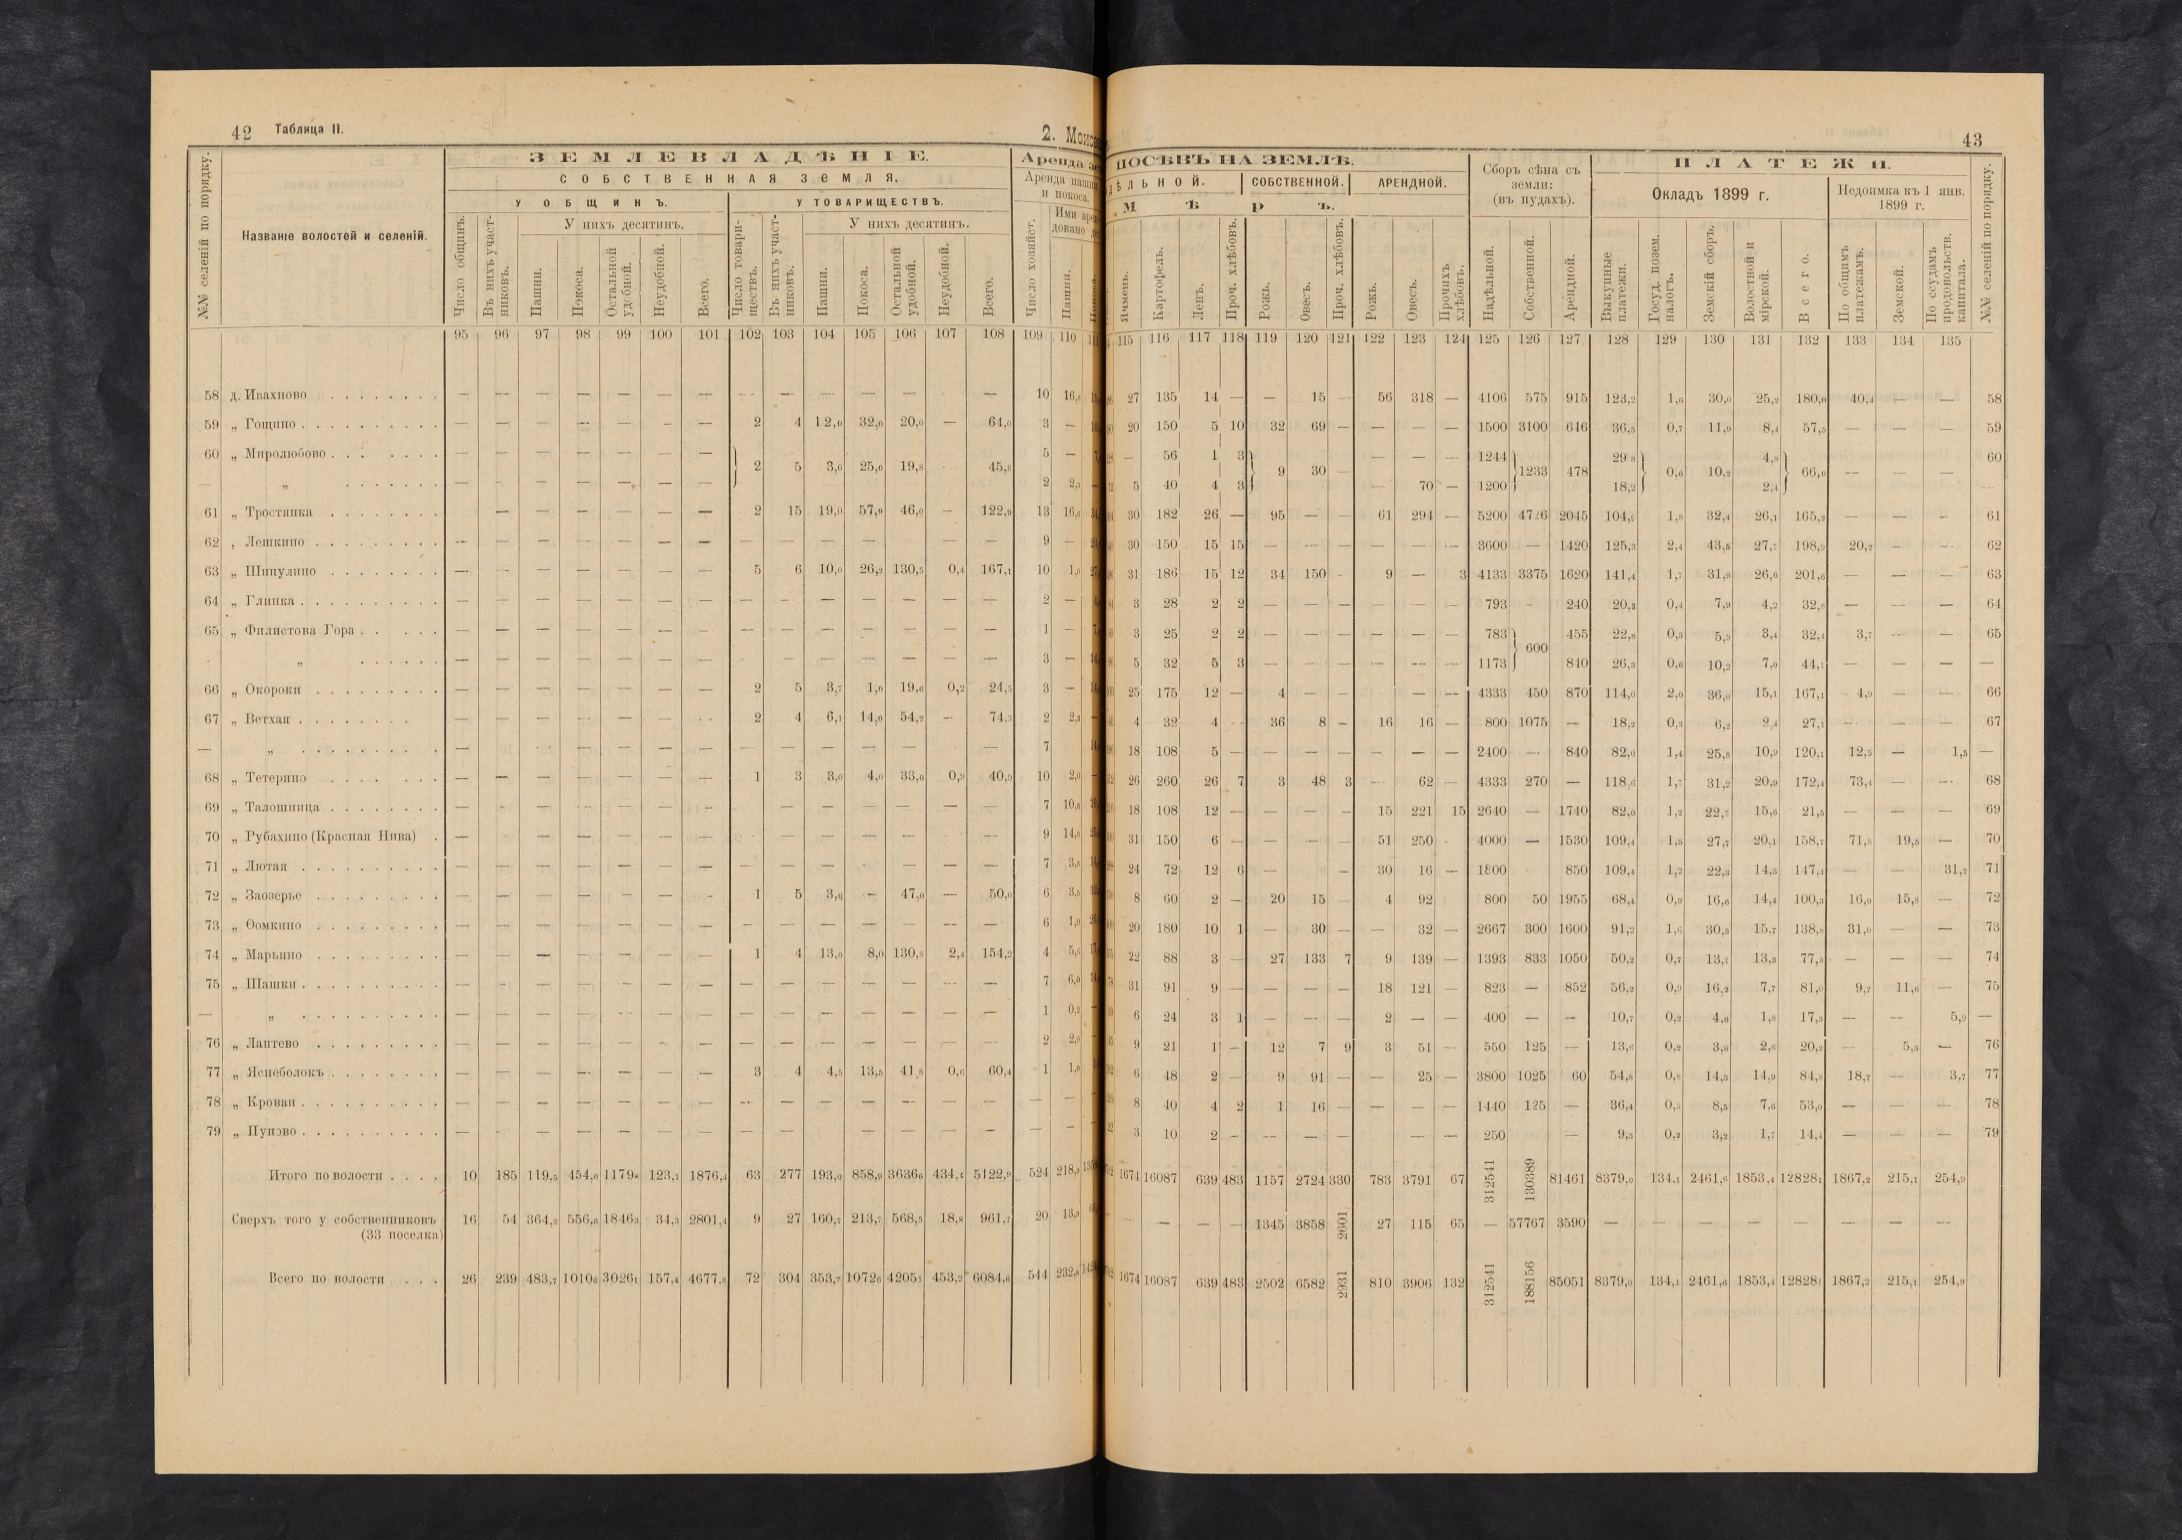 42 Таблица II. 2.
43
ЗЕМЛЕВЛАДѢНІЕ.
СОБСТВЕННАЯ ЗЕМЛЯ.
У ОБЩИНЪ. У ТОВАРИЩЕСТВЪ.
У нихъ десятинъ. У нихъ десятинъ.
№№ селеній по порядку. Названіе волостей и селеній. Число общинъ. Въ нихъ участниковъ. Пашни. Покоса. Остальной удобной. Неудобной. Всего. Число товариществъ. Въ нихъ участниковъ. Пашни. Покоса. Остальной удобной. Неудобной. Всего. Число хозяйст. Пашни.
ПОСѢВЪ НА ЗЕМЛѢ. Сборъ сѣна съ земли: (въ пудахъ). ПЛАТЕЖИ.
СОБСТВЕННОЙ. АРЕНДНОЙ. Окладъ 1899 г. Недоимка къ 1 янв. 1899 г.
Ячмень. Картофель. Ленъ. Проч. хлѣбовъ. Рожь. Овесъ. Проч. хлѣбовъ. Рожь. Овесъ. Прочихъ хлѣбовъ. Надѣльной. Собственной. Арендной. Выкупные платежи. Госуд. позем. налогъ. Земскій сборъ. Волостной и мірской. Всего. По общимъ платежамъ. Земской. По ссудамъ продовольств. капитала. №№ селеній по порядку.
95 96 97 98 99 100 101 102 103 104 105 106 107 108 109 110 115 116 117 118 119 120 121 122 123 124 125 126 127 128 129 130 131 132 133 134 135
58 д. Ивахново — — — — — — — — — — — — — 10 27 135 14 — — 15 — 56 318 — 4106 575 915 123,2 1,6 30,0 25,2 180,0 40,4 — — 58
59 „ Гощино — — — — — — — 2 4 12,0 32,0 20,0 — 64,0 3 — 20 150 5 10 32 69 — — — — 1500 3100 646 36,5 0,7 11,9 8,4 57,5 — — — 59
60 „ Миролюбово — — — — — — — 2 5 3,0 25,0 19,8 45,8 5 — — 56 1 3 9 30 — — — — 1244 1233 478 29,8 0,6 10,2 4,8 66,0 — — — 60
„ — — — — — — — 2 5 40 4 3 — 70 — 1200 18,2 2,4
61 „ Тростянка — — — — — — 2 15 19,0 57,0 46,0 — 122,0 13 30 182 26 — 95 — — 61 294 — 5200 4726 2045 1,8 32,4 26,1 165,2 — — — 61
62 „ Лешкино — — — — — — — — — — — — — — 9 — 30 150 15 15 — — — — — — 3600 — 1420 2,4 43,5 27,7 198,9 20,2 — — 62
63 „ Шипулино — — — — — — — 5 6 10,0 26,2 130,5 0,4 167,1 10 31 186 15 12 34 150 — 9 — 3 4133 3375 1620 141,4 1,7 31,9 26,6 201,6 — — — 63
64 „ Глинка — — — — — — — — — — — — — — 2 — 3 28 2 2 — — — — — — 793 — 240 20,3 0,4 7,9 4,2 32,8 — — — 64
65 „ Филистова Гора — — — — — — — — — — — — — — 1 — 3 25 2 2 — — — — — — 783 600 455 22,8 0,3 5,9 3,4 32,4 3,7 — — 65
„ — — — — — — — — — — — — — — 3 — 5 32 5 3 — — — — — — 1173 840 26,3 0,6 10,2 7,0 44,1 — — — —
66 „ Окороки — — — — — — — 2 5 3,7 1,0 19,6 0,2 24,5 3 — 25 175 12 — 4 — — — 4333 450 870 114,0 2,0 36,0 15,1 167,1 4,9 — — 66
67 „ Ветхая — — — — — — — 2 4 6,1 14,0 54,2 — 74,3 2 4 32 4 — 36 8 — 16 16 — 800 1075 — 18,2 0,3 6,2 2,4 27,1 — — — 67
— „ — — — — — — — — — — — — — 7 18 108 5 — — — — — — — 2400 — 840 82,0 1,4 25,8 10,9 120,1 12,5 — 1,5 —
68 „ Тетерино — — — — — — — 1 3 3,0 4,0 33,0 0,9 40,9 10 2,0 26 260 26 7 3 48 3 — 62 — 4333 270 — 118,6 1,7 31,2 20,9 172,4 73,4 — — 68
69 „ Талошница — — — — — — — — — — — — — 7 10,8 18 108 12 — — — — 15 221 15 2640 — 1740 82,0 1,2 22,7 15,6 21,5 — — — 69
70 „ Рубахино (Красная Нива) — — — — — — — — — — — — — — 9 14,0 31 150 6 — — — — 51 250 — 4000 — 1530 109,4 1,5 27,7 20,1 158,7 71,8 19,5 — 70
71 „ Лютая — — — — — — — — — — — — — — 7 24 72 12 6 — — 30 16 — 1800 850 109,4 1,2 22,3 14,5 147,4 — — 31,2 71
72 „ Заозерье — — — — — — 1 5 3,0 — 47,0 — 50,0 6 8 60 2 — 20 15 — 4 92 800 50 1955 68,4 0,9 16,6 14,4 100,3 16,0 15,8 — 72
73 „ Ѳомкино — — — — — — — — — — — — — — 6 1,0 20 180 10 1 — 30 — — 32 — 2667 300 1600 91,2 1,6 30,3 15,7 138,8 31,0 — — 73
74 „ Марьино — — — — — — — 1 4 13,0 8,0 130,8 2,4 154,2 4 22 88 3 — 27 133 7 9 139 — 1393 833 1050 50,2 0,7 13,1 13,3 77,3 — — — 74
75 „ Шашки — — — — — — — — — — — — — — 7 6,0 31 91 9 — — — — 18 121 — 823 — 852 56,2 0,9 16,2 7,7 81,0 9,7 11,6 — 75
— „ — — — — — — — — — — — — — — 1 0,2 6 24 3 1 — — — 2 — — 400 — — 10,7 0,2 4,6 1,8 17,3 — — 5,9 —
76 „ Лаптево — — — — — — — — — — — — — — 2 2,0 9 21 1 — 12 7 9 3 51 — 550 125 — 13,6 0,2 3,8 2,6 20,2 — 5,3 — 76
77 „ Яснеболокъ — — — — — — — 3 4 4,5 13,5 41,8 0,6 60,4 1 1,0 6 48 2 — 9 91 — — 25 — 3800 1025 60 54,8 0,8 14,3 14,9 84,8 18,7 — 3,7 77
78 „ Крован — — — — — — — — — — — — — — — — 8 40 4 2 1 16 — — — — 1440 125 — 36,4 0,5 8,5 7,6 53,0 — — — 78
79 „ Пупово — — — — — — — — — — — — — — — — 3 10 2 — — — — — — 250 — 9,3 0,2 3,2 1,7 14,4 — — — 79
Итого по волости 10 185 119,5 454,0 1179,8 123,1 1876,4 63 277 193,0 858,9 3636,6 434,4 5122,9 524 218,9 1674 16087 639 483 1157 2724 330 783 3791 67 312541 130389 81461 8379,0 134,1 2461,6 1853,4 12828,1 1867,2 215,1 254,9
Сверхъ того у собственниковъ 16 54 364,2 556,6 1846,3 34,3 2801,4 9 27 160,7 213,7 568,5 18,8 961,7 20 — — — 1345 3858 2601 27 115 65 — 57767 3590 — — — — — — — —
(33 поселка)
Всего по волости 26 239 483,7 1010,6 3026,1 157,4 4677,8 72 304 353,7 1072,6 4205,1 453,2 6084,6 544 232,8 1674 16087 639 483 2502 6582 2931 810 3906 132 312541 188156 85051 8379,0 134,1 2461,6 1853,4 12828,1 1867,2 215,1 254,9